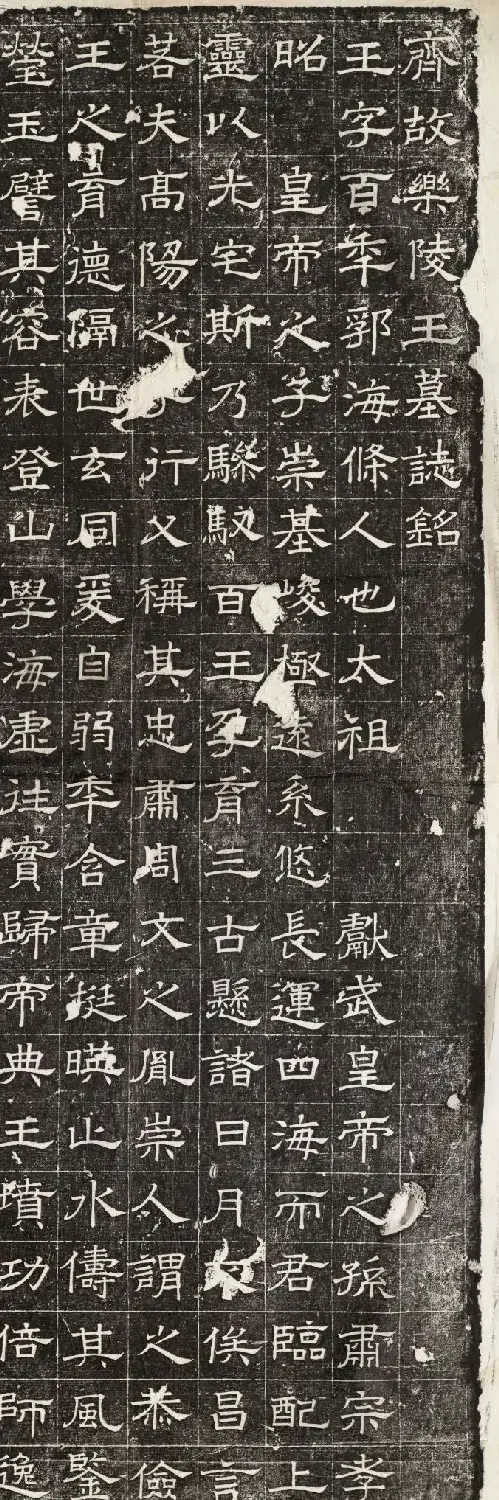 齊故樂陵王墓誌銘
王字百年郭海條人也太祖獻武皇帝之孫肅宗孝
昭皇帝之子崇基峻極遠系悠長運四海而君臨配上
靈以光宅斯乃驂馭百王孕育三古懸諸日月俟昌言
若夫高陽之行父稱其忠肅周文之胤崇人謂之恭儉
王之育德隔世玄同爰自弱年含章挺暎止水儔其風鑒
瑩玉譬其容表登山學海虛往實歸帝典王墳功倍師逸